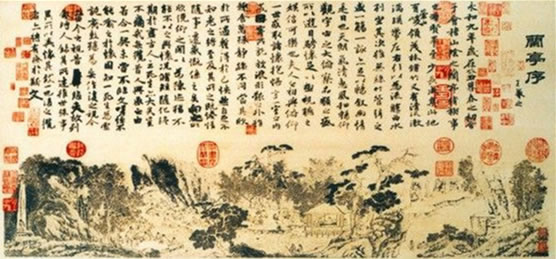 蘭亭序
羲之
永和九年歲在癸丑暮春之初會
于會稽山陰之蘭亭修禊事
也羣賢畢至少長咸集此地
有峻領茂林脩竹又有清流激
湍暎帶左右引以為流觴曲水
列坐其次雖無絲竹管弦之
盛一觴一詠亦足以暢敘幽情
是日也天朗氣清惠風和暢仰
觀宇宙之大俯察品類之盛
所以遊目騁懷足以極視聽之
娛信可樂也夫人之相與俯仰
一世或取諸懷抱悟言一室之內
或因寄所託放浪形骸之外雖
趣舍萬殊靜躁不同當其欣
於所遇暫得於己怏然自足不
知老之將至及其所之既惓情
隨事遷感慨係之矣向之所
欣俛仰之間以為陳迹猶不
能不以之興懷況脩短隨化終
期於盡古人云死生亦大矣豈
不痛哉每攬昔人興感之由
若合一契未嘗不臨文嗟悼不
能喻之於懷固知一死生為虛
誕齊彭殤為妄作後之視今
亦由今之視昔悲夫故列
敘時人錄其所述雖世殊事
異所以興懷其致一也後之攬
者亦將有感於斯文